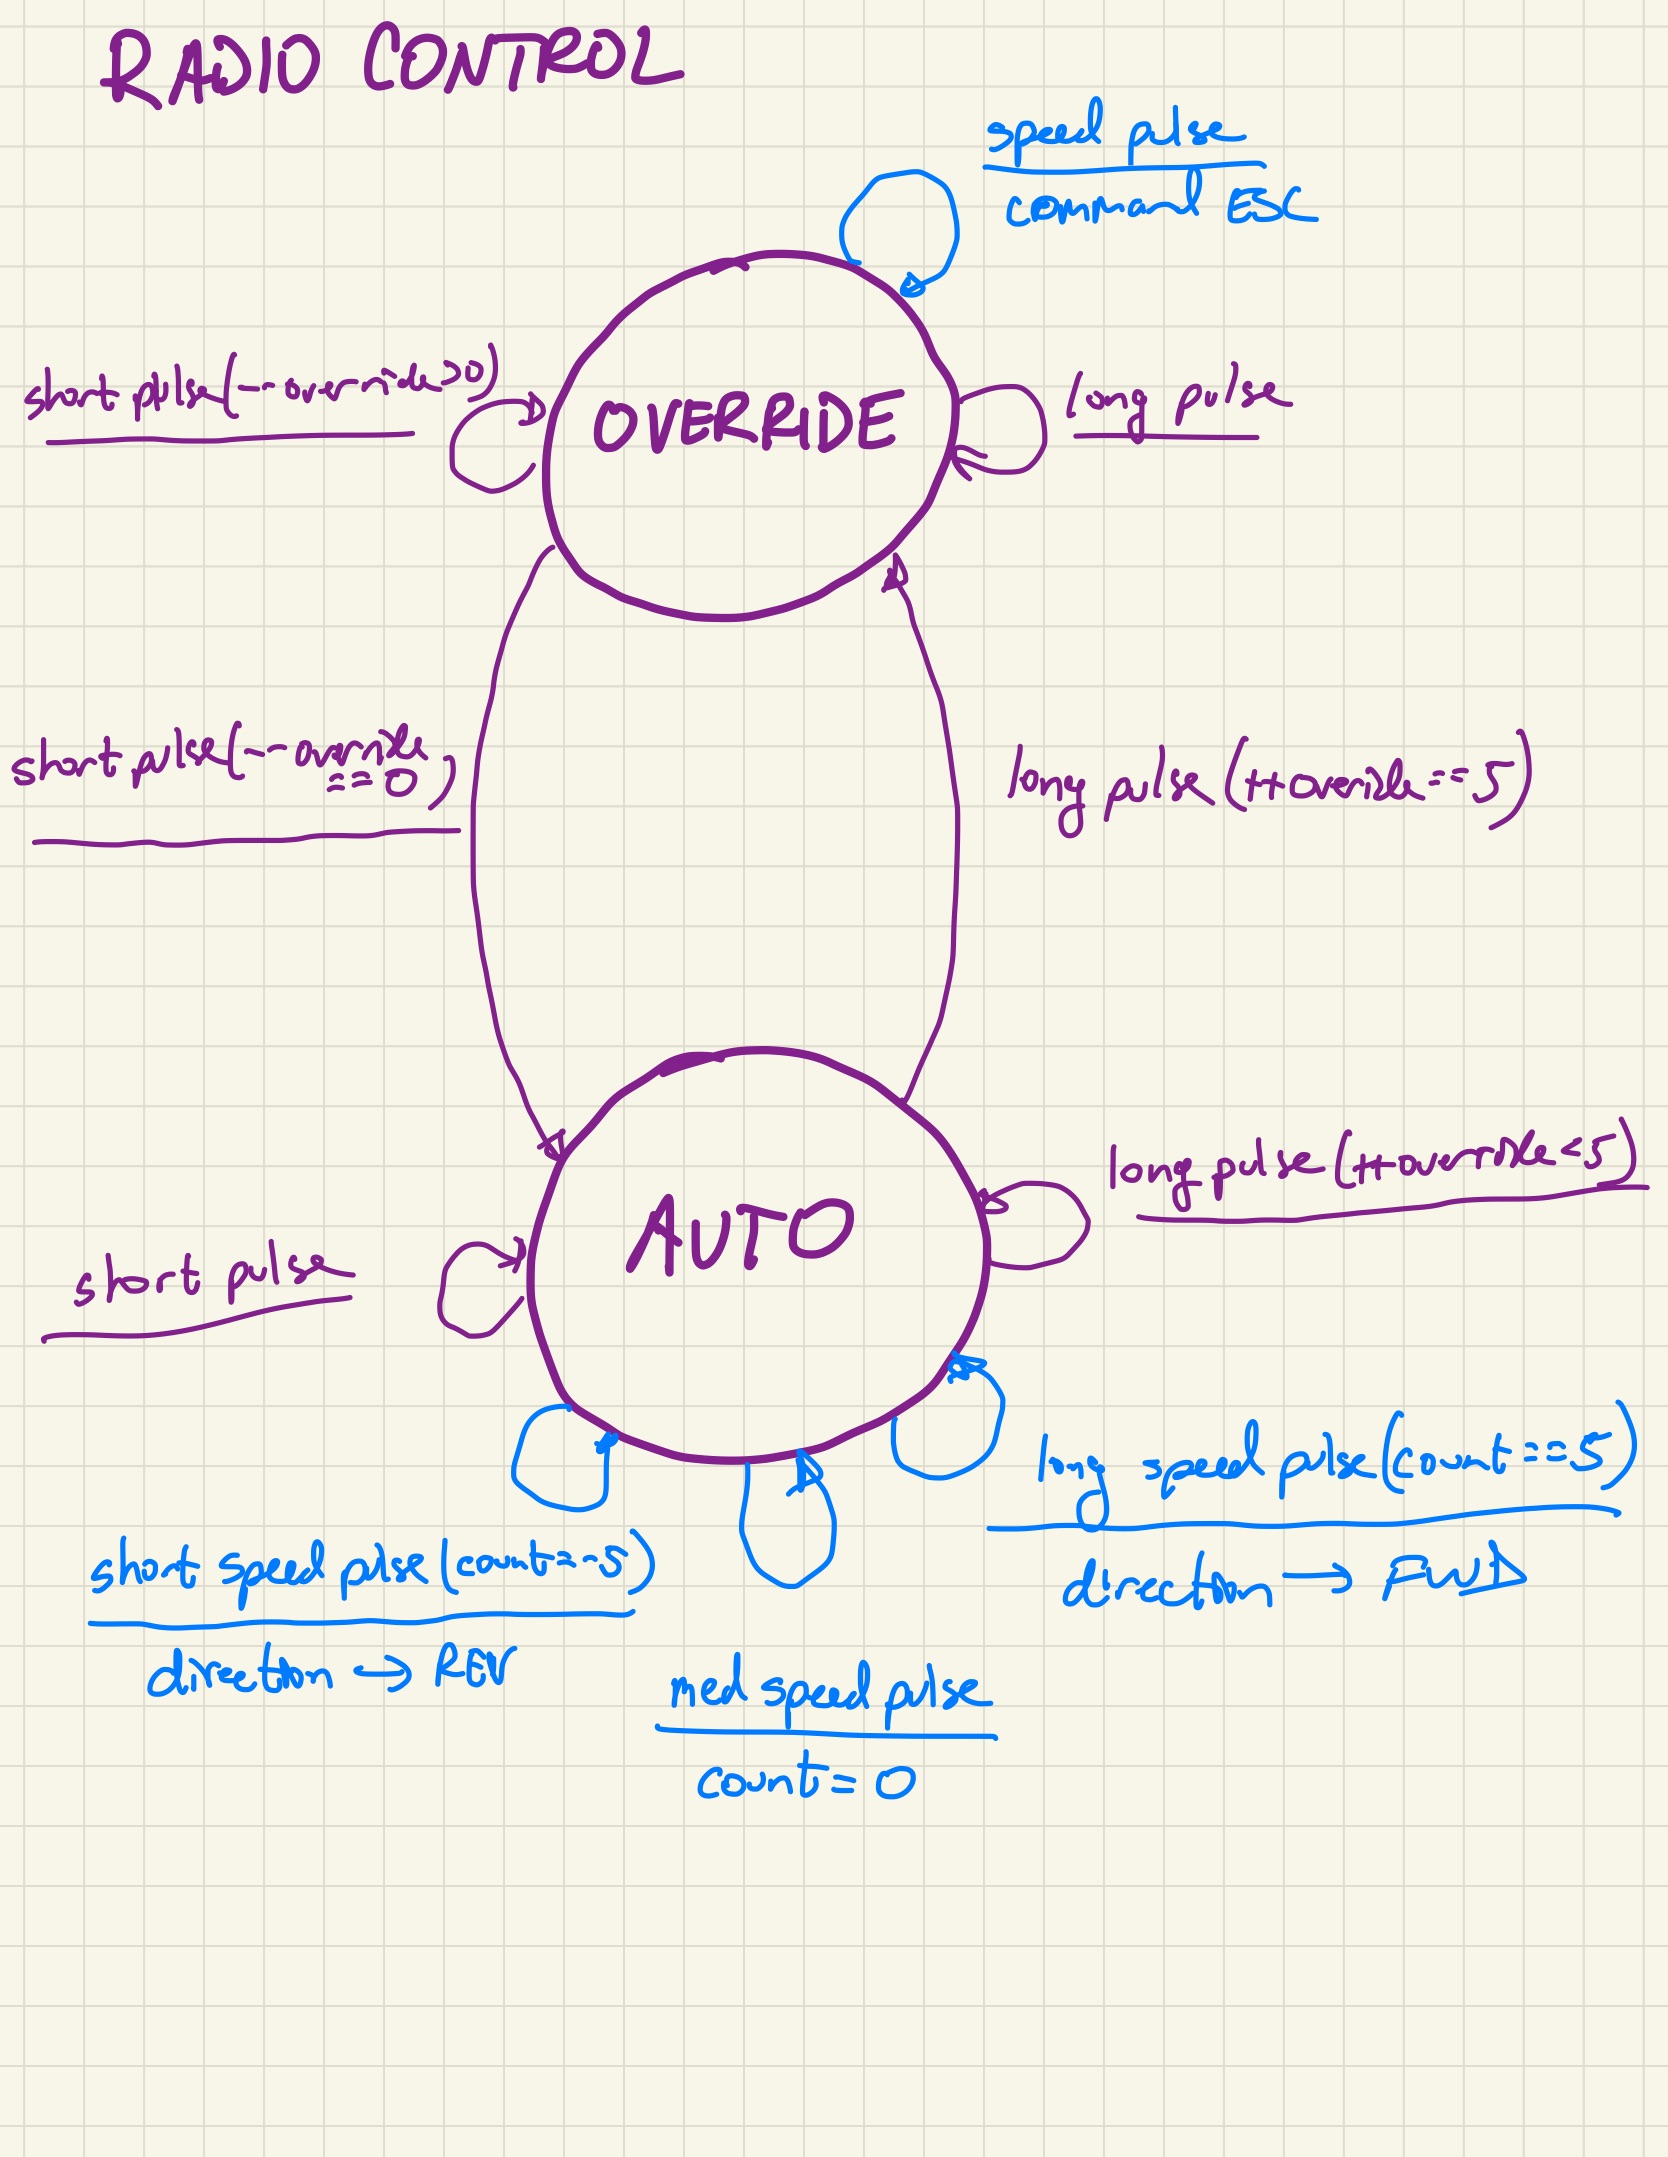 RADIO CONTROL
speed pulse
command ESC
short pulse(--override>0)
OVERRIDE
long pulse
short pulse(--override
==0)
long pulse (++override==5)
long pulse (++override<5)
AUTO
short pulse
long speed pulse(count==5)
direction → FWD
short speed pulse(count=-5)
direction → REV
med speed pulse
count=0